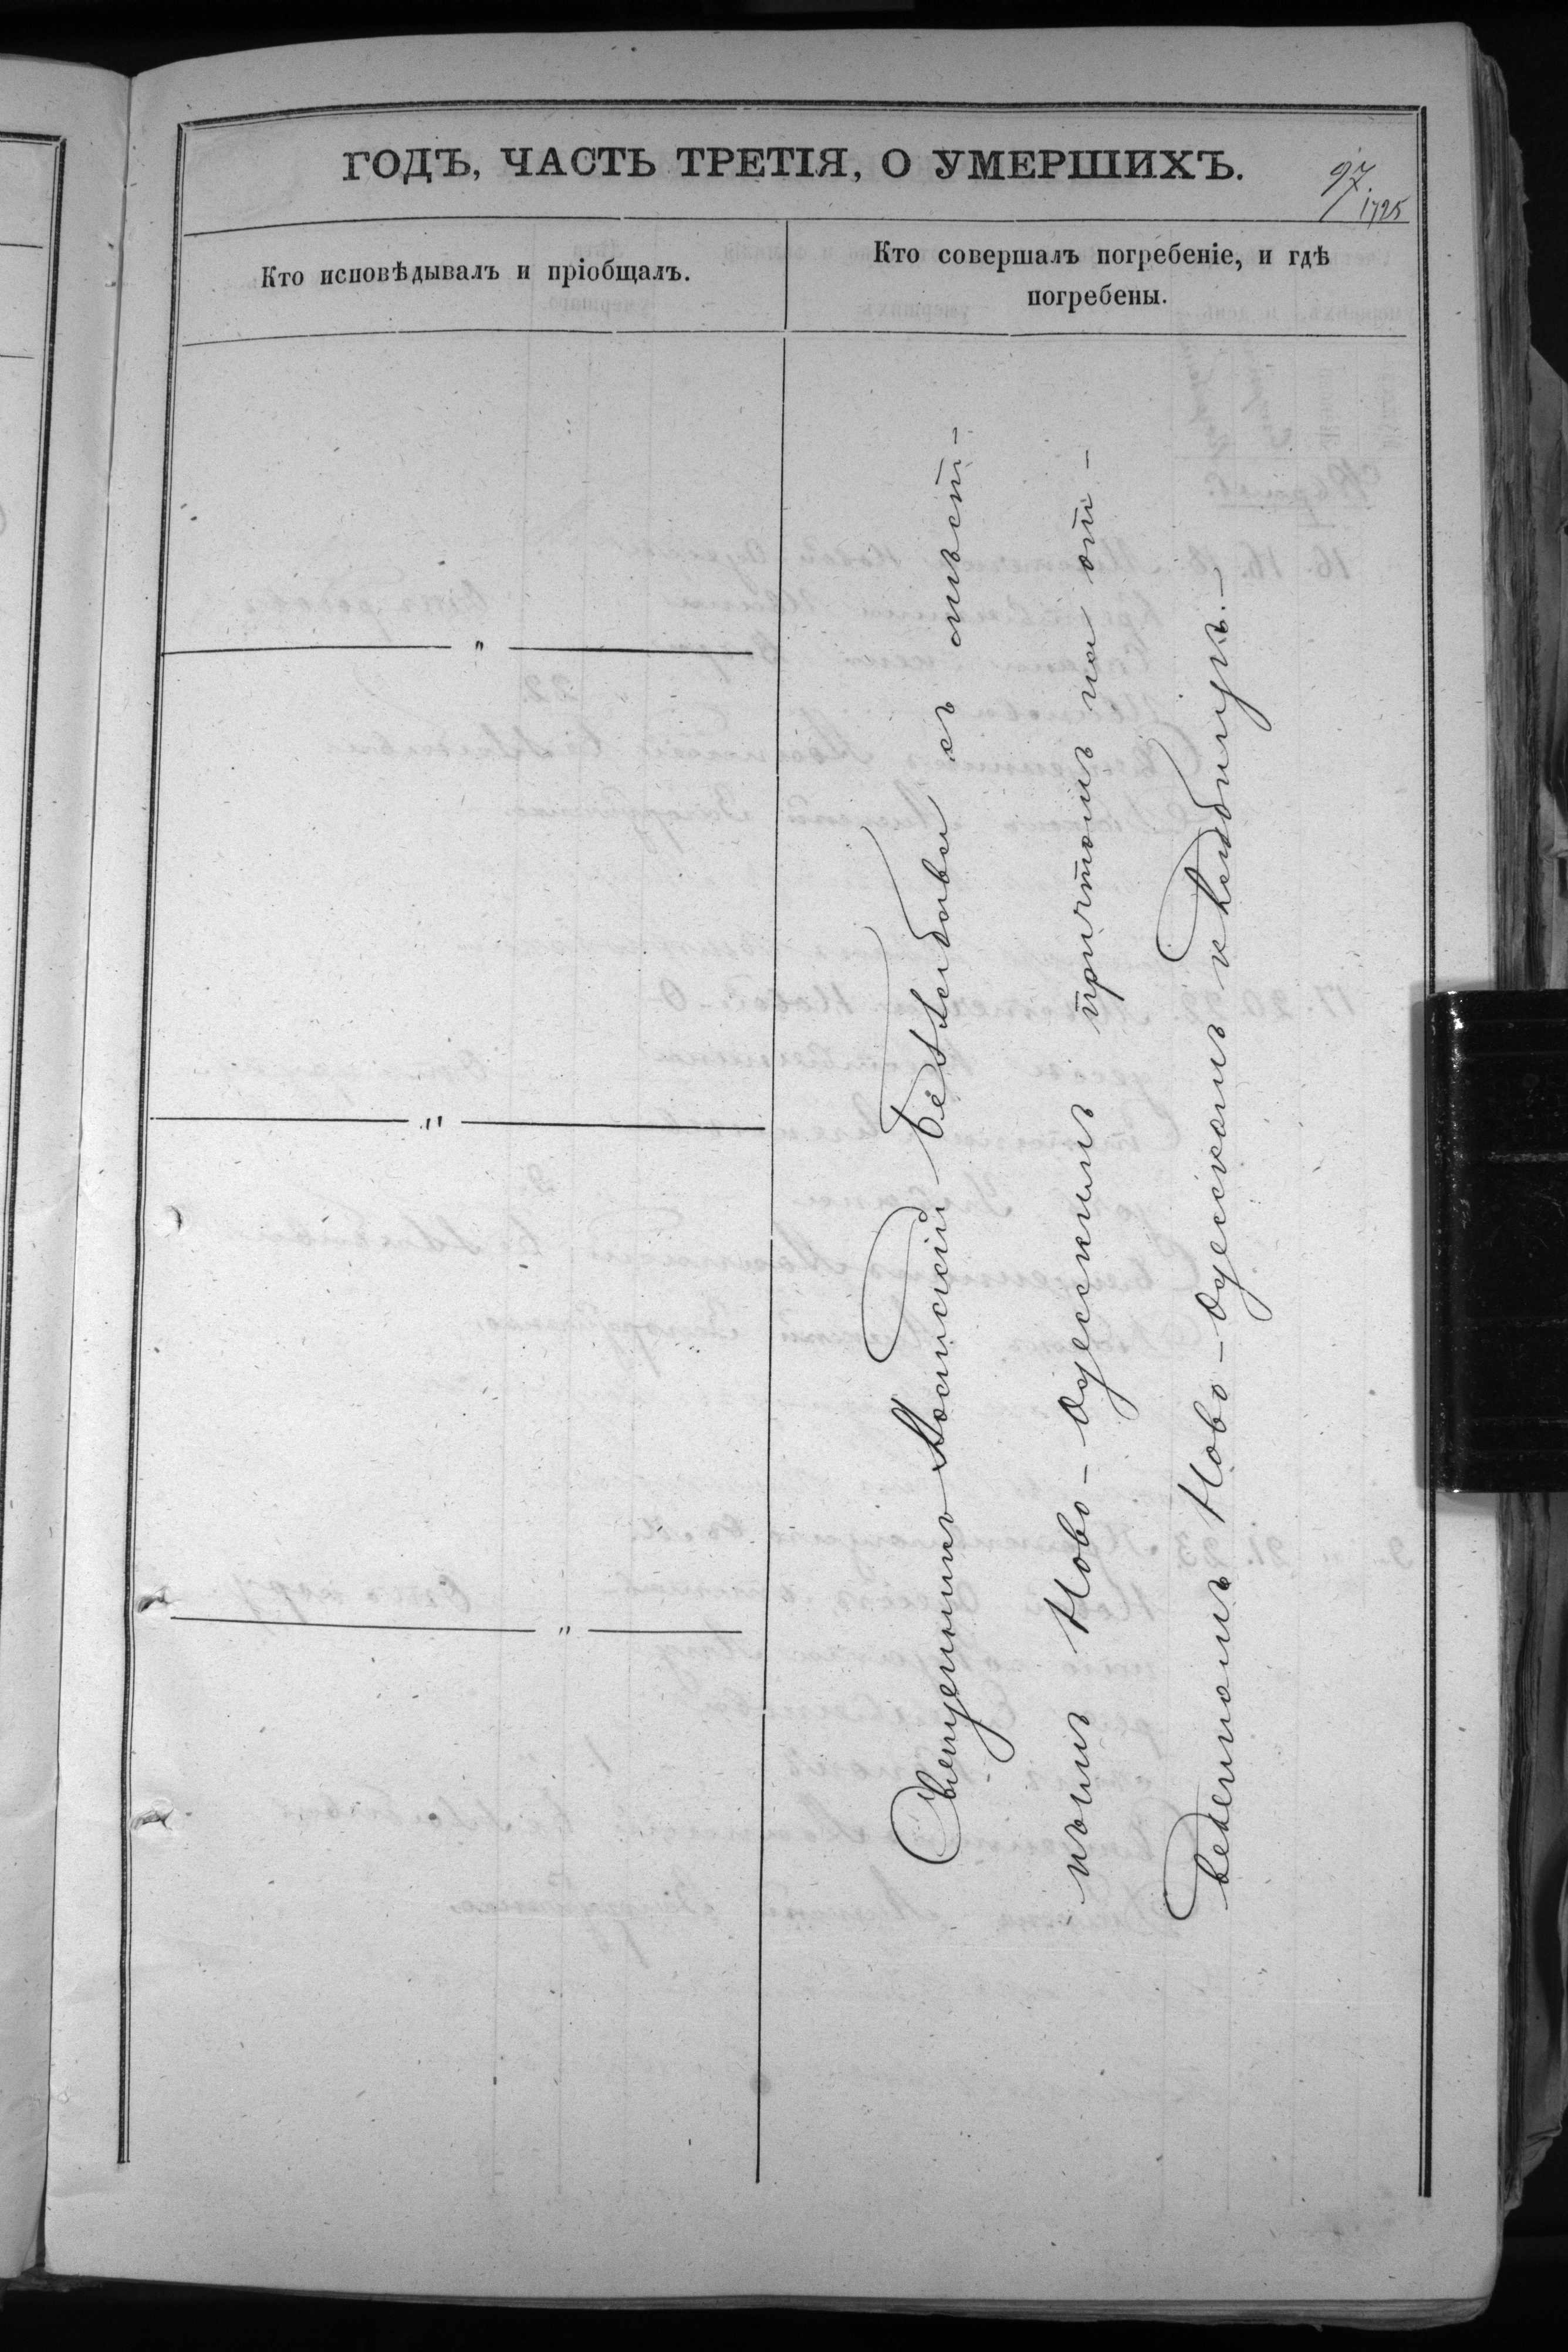 ГОДЪ, ЧАСТЬ ТРЕТІЯ, О УМЕРШИХЪ.
97
1725
Кто исповѣдывалъ и пріобщалъ.
Кто совершалъ погребеніе, и гдѣ
погребены.
"
"
"
Священникъ съ мѣст-
нымъ Ново-Одесскимъ причтомъ на от-
веденномъ Ново-Одесскомъ кладбищѣ.-